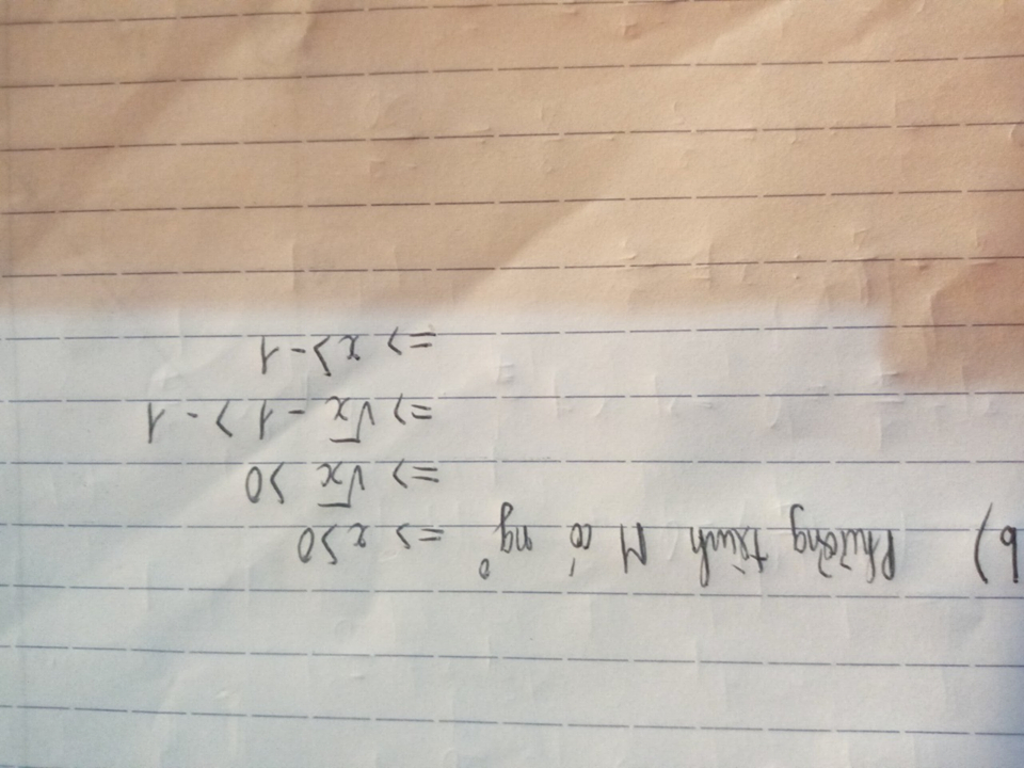 b) Phương trình M có ngº => x>0
=> √x >0
=> √x - 1 > -1
=> x > -1